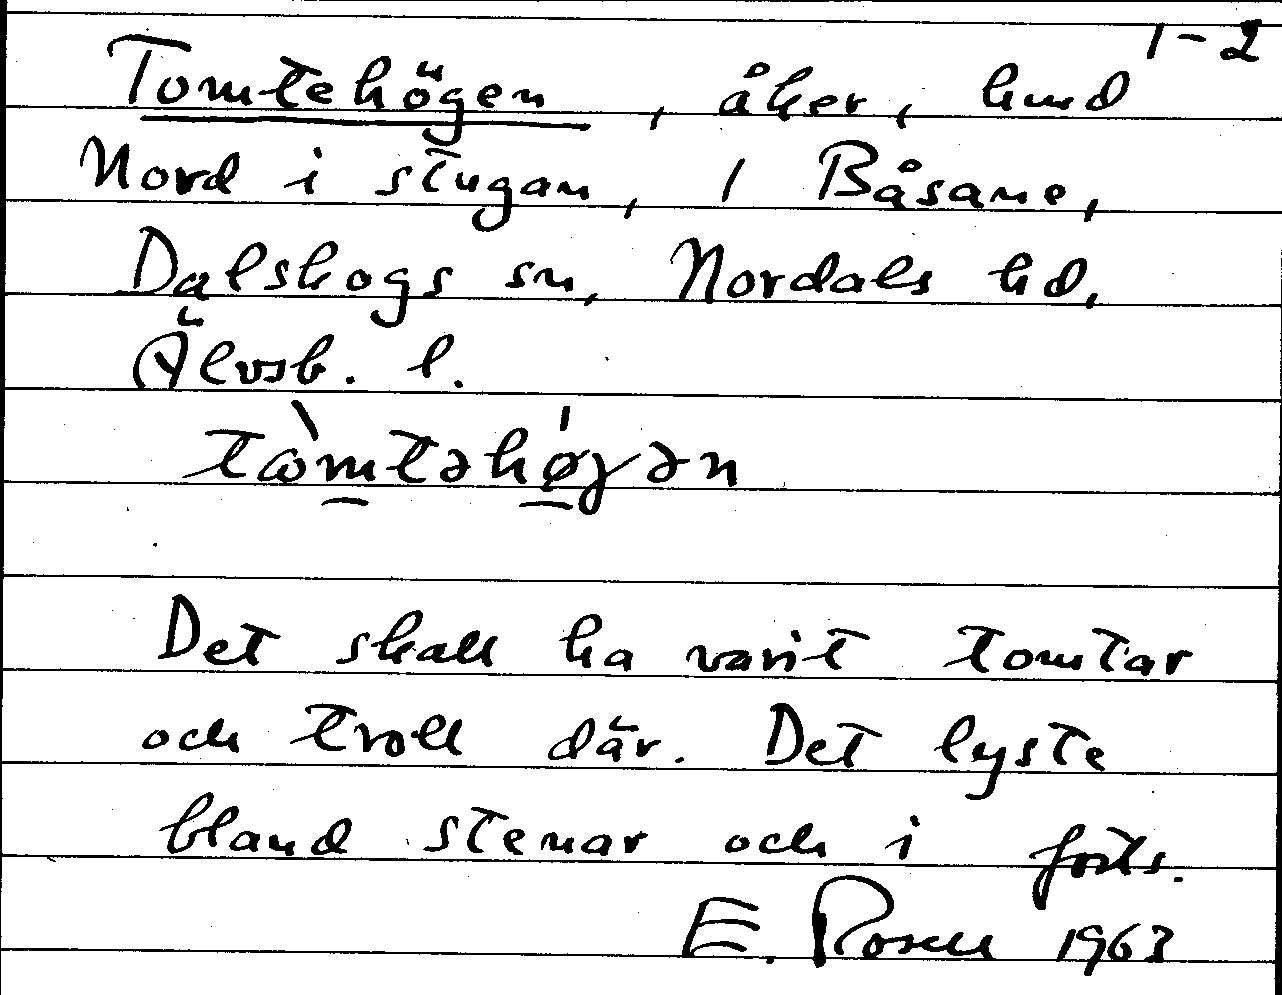 1-2
Tomtehögen, åker, hmd
Nord i stugan, 1 Båsane,
Dalskogs sn, Nordals hd,
Älvsb. l.
tòmtəhø̀gən
Det skall ha varit tomtar
och troll där. Det lyste
bland stenar och i forts.
E. Rosell 1963